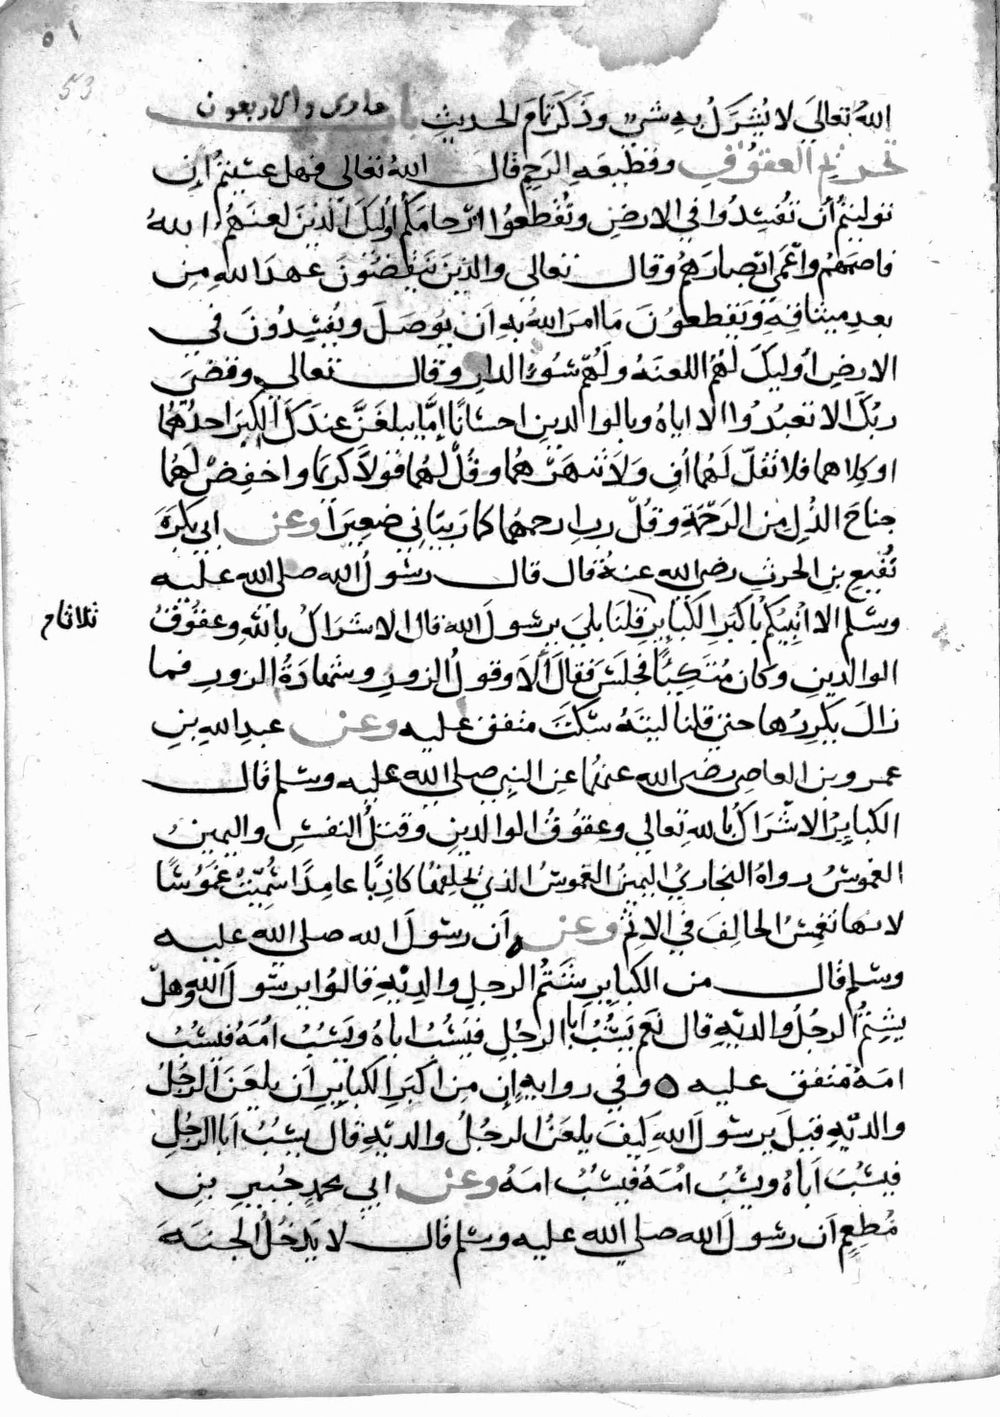 ٥١
53
الله تعالى لا يشرك به شيء وذكر تمام الحديث باب حادى والاربعون
تحريم العقوق وقطيعة الرحم قال الله تعالى فهل عسيتم ان
توليتم أن تفسدوا في الارض وتقطعوا ارحامكم أوليك الذين لعنهم الله
فاصمهم وأعمى ابصارهم وقال تعالى والذين ينقضون عهد الله من
بعد ميثاقه ويقطعون ما امر الله به ان يوصل ويفسدون في
الارض أوليك لهم اللعنة ولهم سوء الدار وقال تعالى وقضى
ربك الا تعبدوا الا اياه وبالوالدين احسانا إما يبلغن عندك الكبر احدهما
او كلاهما فلا تقل لهما أف ولا تنهرهما وقل لهما قولا كريما واخفض لهما
جناح الذل من الرحمة وقل رب ارحمهما كما ربياني صغيرا وعن ابي بكرة
نفيع بن الحرث رضي الله عنه قال قال رسول الله صلى الله عليه
وسلم الا انبيكم باكبر الكباير قلنا بلى يرسول الله قال الاشراك بالله وعقوق
ثلاثا م
الوالدين وكان متكيا فجلس فقال ألا وقول الزور وشهادة الزور فما
زال يكررها حتى قلنا ليته سكت متفق عليه وعن عبد الله بن
عمرو بن العاصي رضي الله عنهما عن النبي صلى الله عليه وسلم قال
الكباير الاشراك بالله تعالى وعقوق الوالدين وقتل النفس واليمين
الغموس رواه البخاري اليمين الغموس الذي يحلفها كاذبا عامدا سميت غموسا
لانها تغمس الحالف في الاثم وعنه أن رسول الله صلى الله عليه
وسلم قال من الكباير شتم الرجل والديه قالوا يرسول الله وهل
يشتم الرجل والديه قال نعم يسب أبا الرجل فيسب اباه ويسب امه فيسب
امه متفق عليه ٥ وفي رواية إن من اكبر الكباير ان يلعن الرجل
والديه قيل يرسول الله كيف يلعن الرجل والديه قال يسب أبا الرجل
فيسب أباه ويسب امه فيسب امه وعن ابي محمد جبير بن
مطعم أن رسول الله صلى الله عليه وسلم قال لا يدخل الجنة